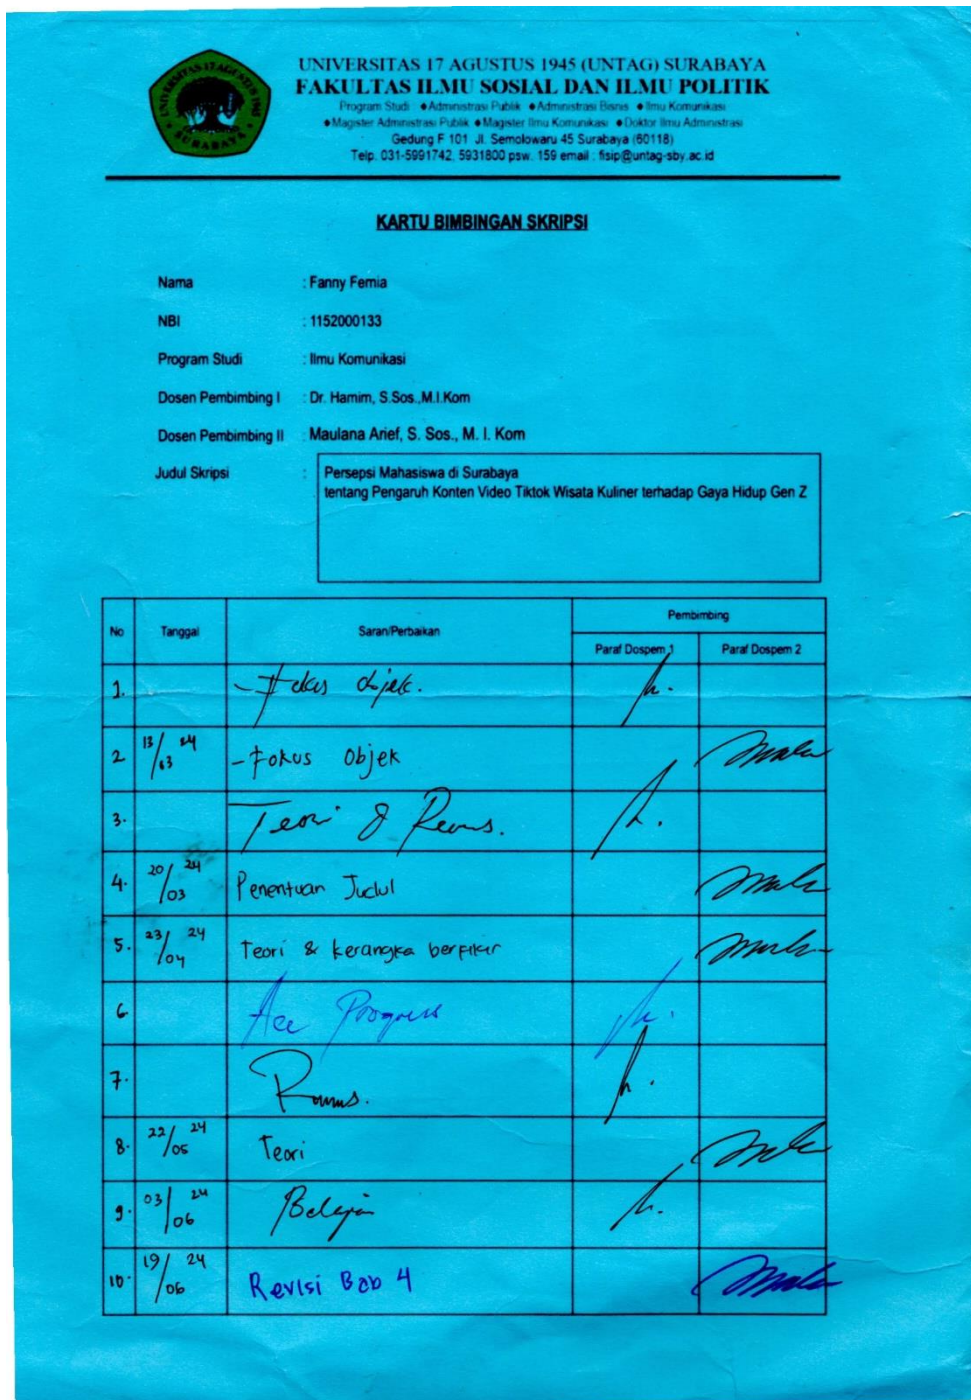 UNIVERSITAS 17 AGUSTUS 1945
SURABAYA
UNIVERSITAS 17 AGUSTUS 1945 (UNTAG) SURABAYA
FAKULTAS ILMU SOSIAL DAN ILMU POLITIK
Program Studi : ◆Administrasi Publik ◆Administrasi Bisnis ◆Ilmu Komunikasi
◆Magister Administrasi Publik ◆Magister Ilmu Komunikasi ◆Doktor Ilmu Administrasi
Gedung F 101 Jl. Semolowaru 45 Surabaya (60118)
Telp. 031-5991742, 5931800 psw. 159 email : fisip@untag-sby.ac.id
KARTU BIMBINGAN SKRIPSI
Nama : Fanny Femia
NBI : 1152000133
Program Studi : Ilmu Komunikasi
Dosen Pembimbing I : Dr. Hamim, S.Sos.,M.I.Kom
Dosen Pembimbing II : Maulana Arief, S. Sos., M. I. Kom
Judul Skripsi : Persepsi Mahasiswa di Surabaya
tentang Pengaruh Konten Video Tiktok Wisata Kuliner terhadap Gaya Hidup Gen Z
No Tanggal Saran/Perbaikan Pembimbing
Paraf Dospem 1 Paraf Dospem 2
1. - objek.
2 13/03 24 - Fokus Objek
3. Teori &
4. 20/03 24 Penentuan Judul
5. 23/04 24 Teori & kerangka berfikir
6 Acc Progress
7.
8. 22/05 24 Teori
9. 03/06 24
10. 19/06 24 Revisi Bab 4